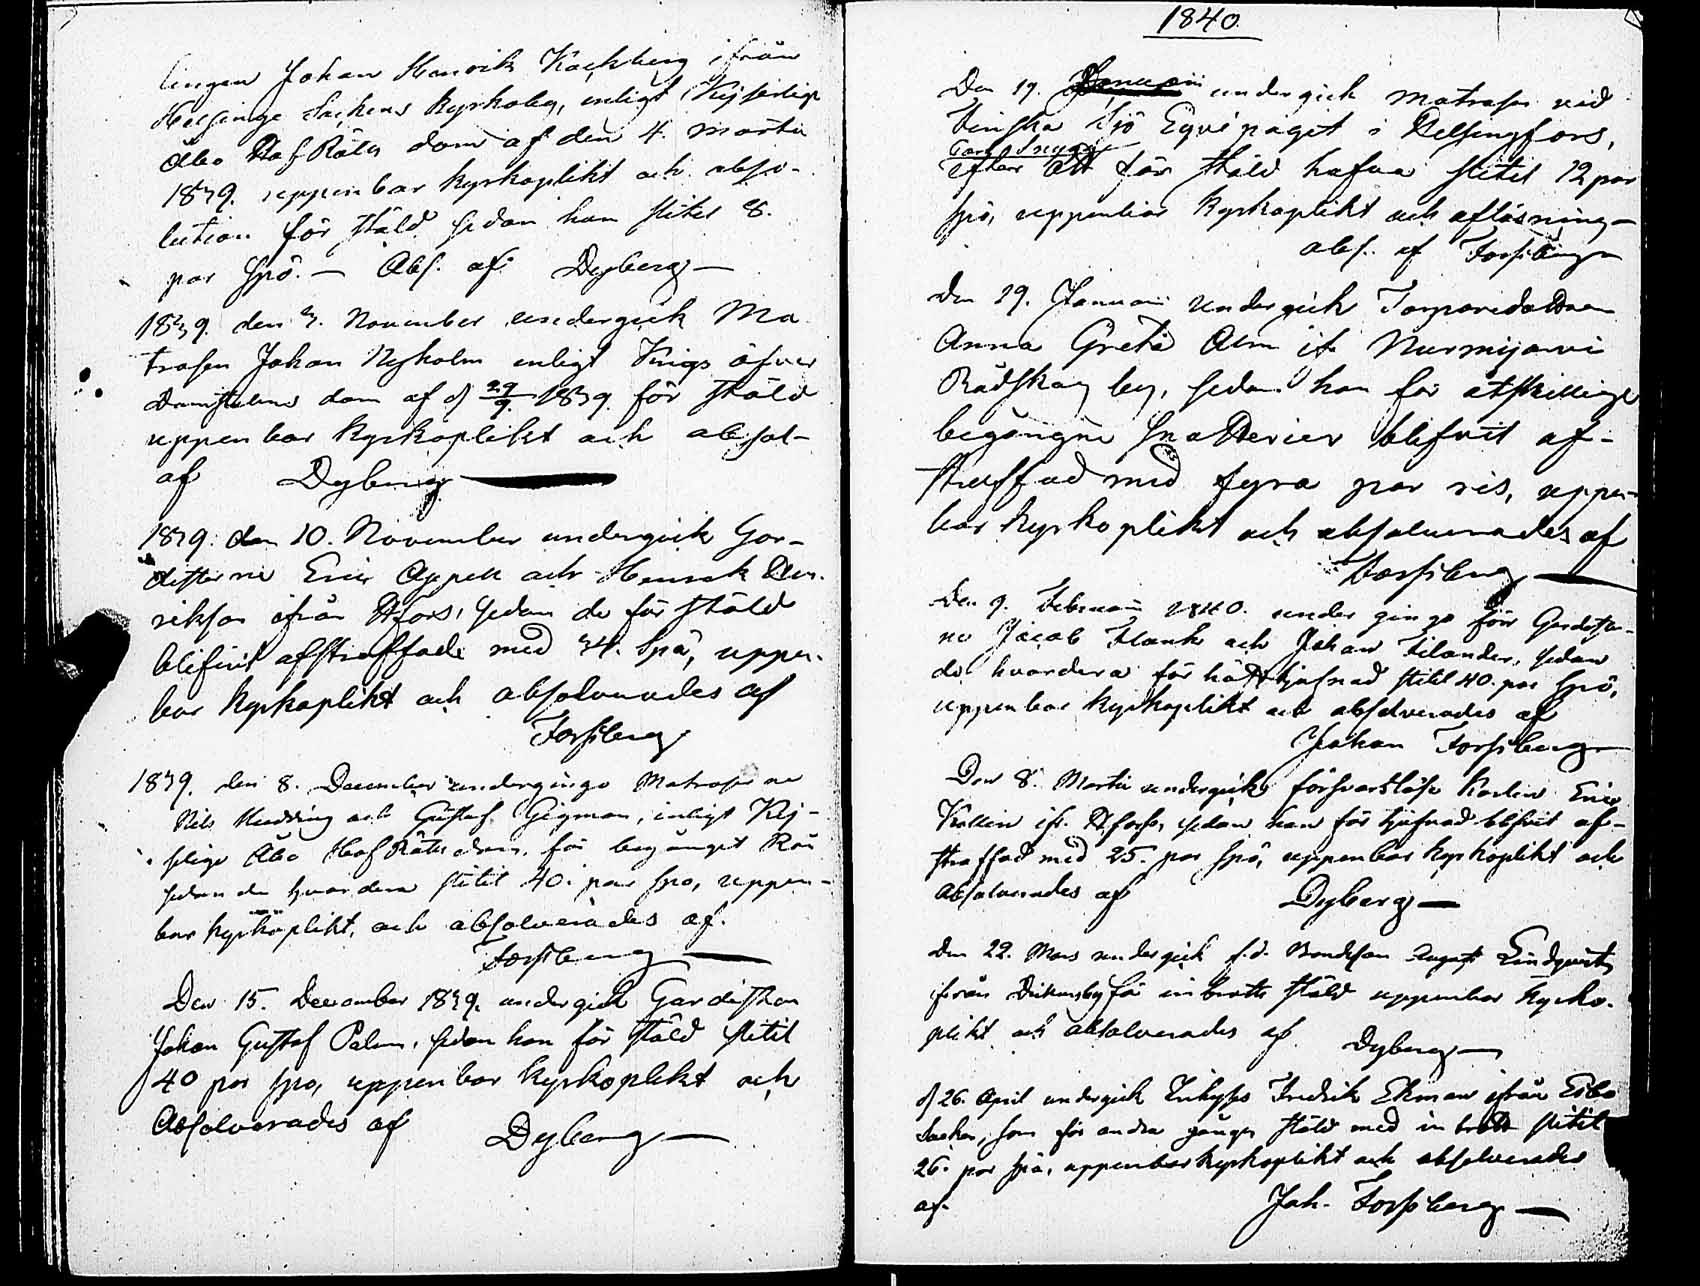 lingen Johan Henrik Kackberg ifrån
Helsinge Sockens Kyrkoby, enligt Kejserlige
Åbo Hof Rätts dom af den 4. Martii
1839. uppenbar kyrkoplikt och abso-
lution för stöld sedan han slitit 8.
par spö. — Abs. af Dyberg —
1839. den 3. November undergick Ma
trosen Johan Nyholm enligt Krigs öfver
Domstolens dom af d 27/9. 1839. för stöld
uppenbar kyrkoplikt och absol-
af Dyberg —
1839. den 10. November undergick Gar-
disterne Eric Appell och Henrik
riksson ifrån Hfors, sedan de för stöld
blifvit afstraffade med 34. spö, uppen-
bar kyrkoplikt och absolverades af
Forssberg
1839. den 8. December undergingo Matroserne
Nils och Gustaf Gigman, enligt Kej-
serlige Åbo Hof Rätts dom, för begånget Rån
sedan de hvardera slitit 40. par spö, uppen-
bar kyrkoplikt, och absolverades af.
Forssberg —
Den 15. December 1839. undergick Gardisten
Johan Gustaf Palm, sedan han för stöld slitit
40 par spö, uppenbar kyrkoplikt och
Absolverades af Dyberg —
1840.
Den 19. Januarii undergick Matrosen vid
Finska Sjö Equipaget i Helsingfors,
Carl
efter att för stöld hafva slitit 12 par
spö, uppenbar kyrkoplikt och aflösning —
abs. af Forssberg
Den 19. Januarii undergick Torparedottren
Anna Greta Alm if. Nurmijärvi
by, sedan hon för åtskillige
begångne snatterier blifvit af-
straffad med fyra par ris, uppen-
bar kyrkoplikt och absolverades af
Forssberg —
Den 9. Februarii 1840. undergingo förr Gardister-
ne Jacob Flank och Johan Filander, sedan
de hvardera för tjufnad slitit 40. par spö,
uppenbar kyrkoplikt och absolverades af
Johan Forssberg —
Den 8. Martii undergick försvarslöse Karlen Eric
Kollin ifr. Hfors, sedan han för tjufnad blifvit af-
straffad med 25. par spö, uppenbar kyrkoplikt och
absolverades af Dyberg —
Den 22. Mars undergick f.d. Bondeson August Lindqvist
ifrån Dickursby för inbrotts stöld uppenbar kyrko-
plikt och absolverades af Dyberg —
d 26. April undergick Fredrik Ekman ifrån Esbo
Socken, som för andra gången stöld med inbrott slitit
26. par spö, uppenbar kyrkoplikt och absolverades
af. Joh. Forssberg —